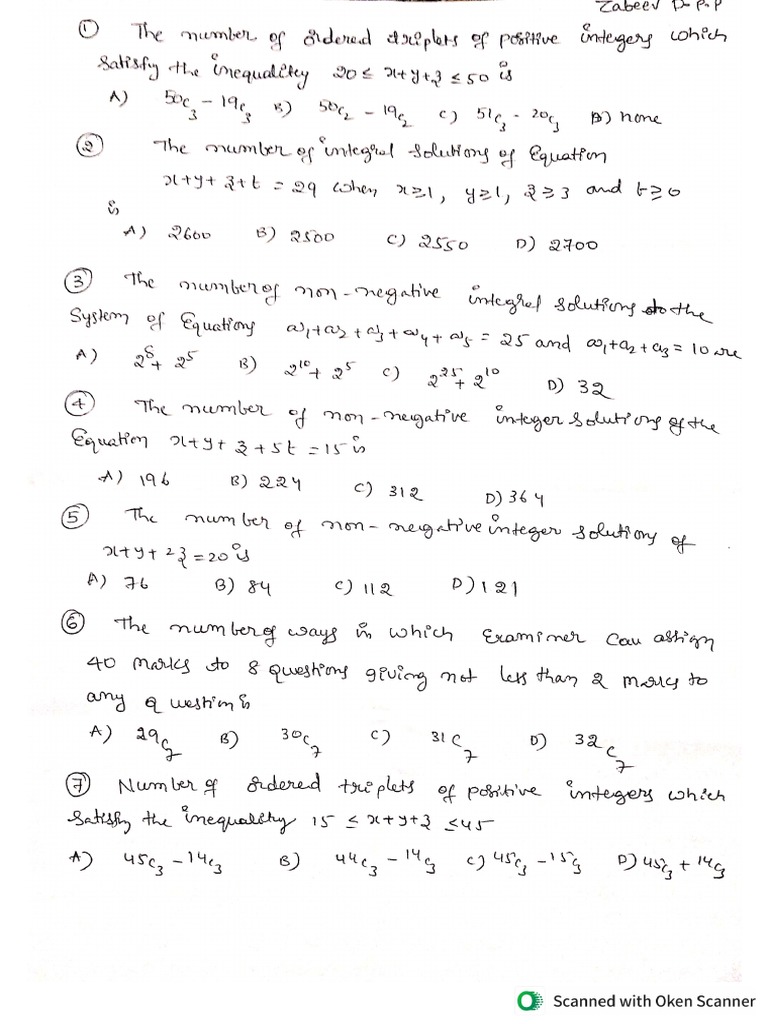 Zabeev D.P.P
① The number of ordered triplets of positive integers which
satisfy the inequality 20 ≤ x+y+z ≤ 50 is
A) 50c₃ - 19c₃ B) 50c₂ - 19c₂ C) 51c₃ - 20c₃ D) none
② The number of integral solutions of Equation
x+y+z+t = 29 when x≥1, y≥1, z≥3 and t≥0
is
A) 2600 B) 2500 C) 2550 D) 2700
③ The number of non-negative integral solutions to the
System of Equations a₁+a₂+a₃+a₄+a₅ = 25 and a₁+a₂+a₃ = 10 are
A) 2⁸+2⁵ B) 2¹⁰+2⁵ C) 2²⁵+2¹⁰ D) 32
④ The number of non-negative integer solutions of the
Equation x+y+z+5t = 15 is
A) 196 B) 224 C) 312 D) 364
⑤ The number of non-negative integer solutions of
x+y+2z = 20 is
A) 76 B) 84 C) 112 D) 121
⑥ The number of ways in which Examiner can assign
40 marks to 8 questions giving not less than 2 marks to
any question is
A) 29c₇ B) 30c₇ C) 31c₇ D) 32c₇
⑦ Number of ordered triplets of positive integers which
satisfy the inequality 15 ≤ x+y+z ≤ 45
A) 45c₃ - 14c₃ B) 44c₃ - 14c₃ C) 45c₃ - 15c₃ D) 45c₃ + 14c₃
Scanned with Oken Scanner